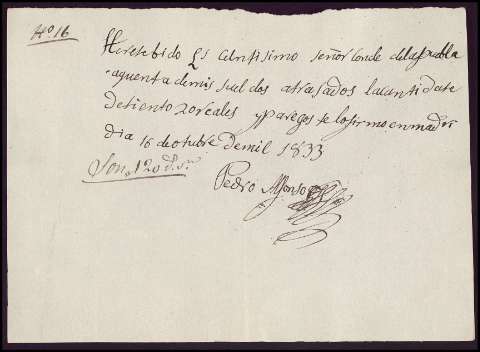 No. 16
He resebido Es celntisimo señor conde dela puebla
aquenta demis suel dos atrasados lacantidate
detiento 20 reales y paregos te lo firmo en madri
dia 16 de otubre demil 1833
Son 120 rs. vn
Pedro Alfonso